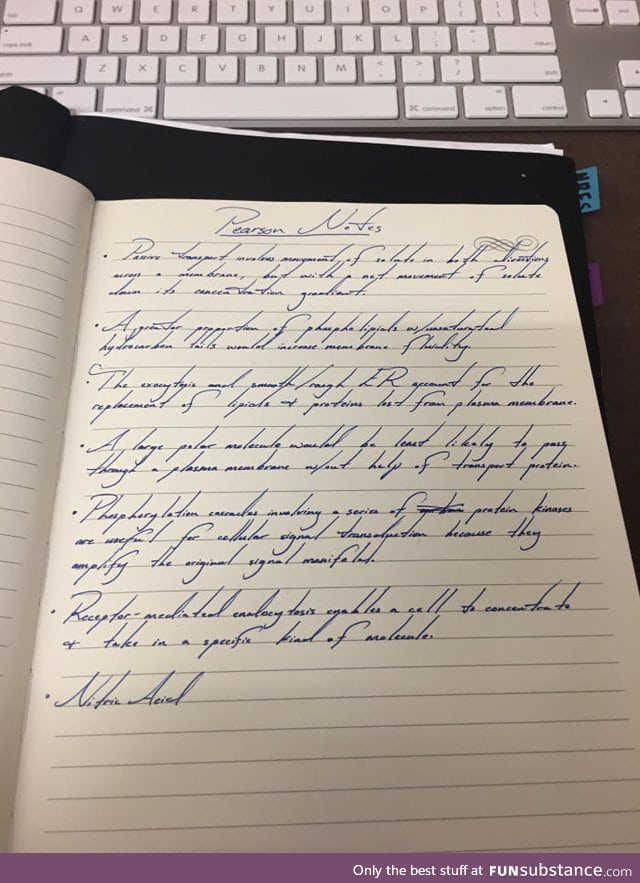 Q W E R T Y U I O P
caps lock A S D F G H J K L return
shift Z X C V B N M shift
command command option control
NOTES
Pearson Notes
• Passive transport involves movement of solute in both directions
across a membrane, but with a net movement of solute
down its concentration gradient.
• A greater proportion of phospholipids w/unsaturated
hydrocarbon tails would increase membrane fluidity
• The exocytosis and smooth/rough ER account for the
replacement of lipids & proteins lost from plasma membrane.
• A large polar molecule would be least likely to pass
through a plasma membrane w/out help of transport protein.
• Phosphorylation cascades involving a series of protein kinases
are useful for cellular signal transduction because they
amplify the original signal manifold.
• Receptor-mediated endocytosis enables a cell to concentrate
& take in a specific kind of molecule.
• Nitric Acid
Only the best stuff at FUNsubstance.com